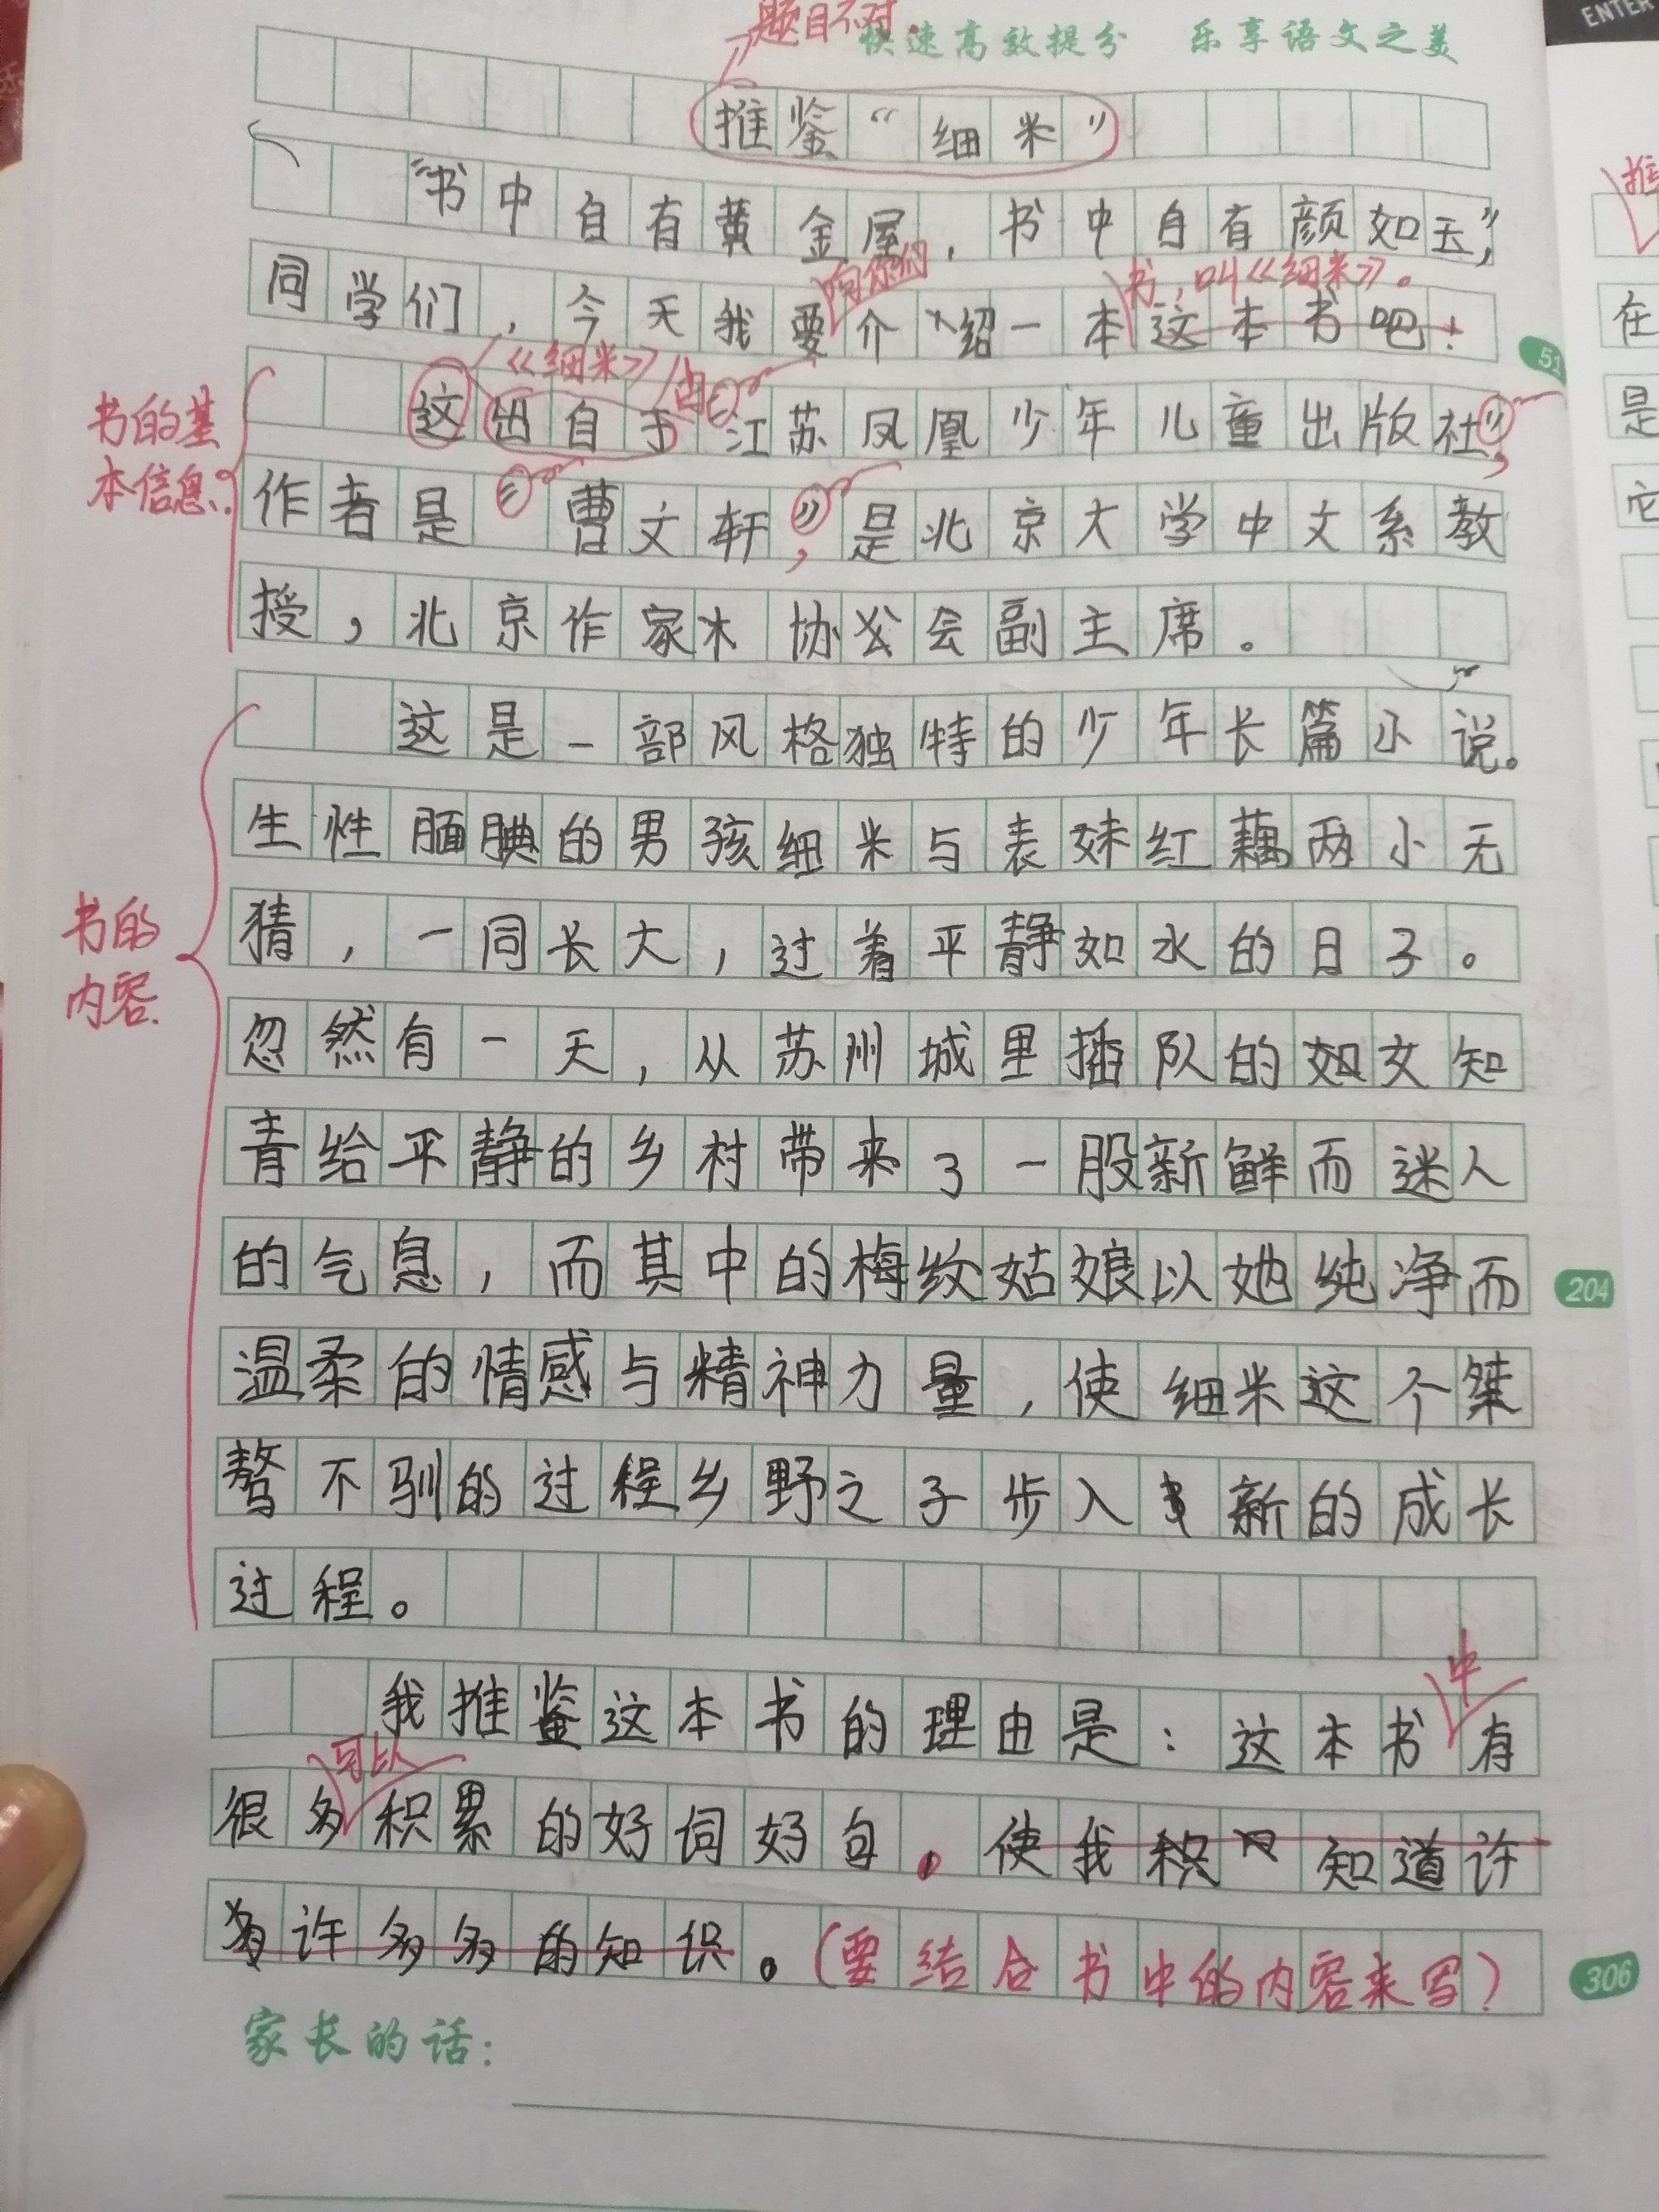 ENTER
题目不对
快速高效提分 乐享语文之美
推鉴“细米”
“书中自有黄金屋,书中自有颜如玉”,
向你们
书,叫《细米》。
同学们,今天我要介绍一本这本书吧!
51
《细米》由
书的基本信息
这出自于“江苏凤凰少年儿童出版社”,
作者是“曹文轩”,是北京大学中文系教
授,北京作家协会副主席。
这是一部风格独特的少年长篇小说。
生性腼腆的男孩细米与表妹红藕两小无
猜,一同长大,过着平静如水的日子。
书的内容
忽然有一天,从苏州城里插队的女知
青给平静的乡村带来了一股新鲜而迷人
的气息,而其中的梅纹姑娘以她纯净而
204
温柔的情感与精神力量,使细米这个桀
骜不驯的过程乡野之子步入新的成长
过程。
中
我推鉴这本书的理由是:这本书有
可以
很多积累的好词好句。使我积知道许
多许多多的知识。(要结合书中的内容来写)
306
家长的话:
推
在
是
它